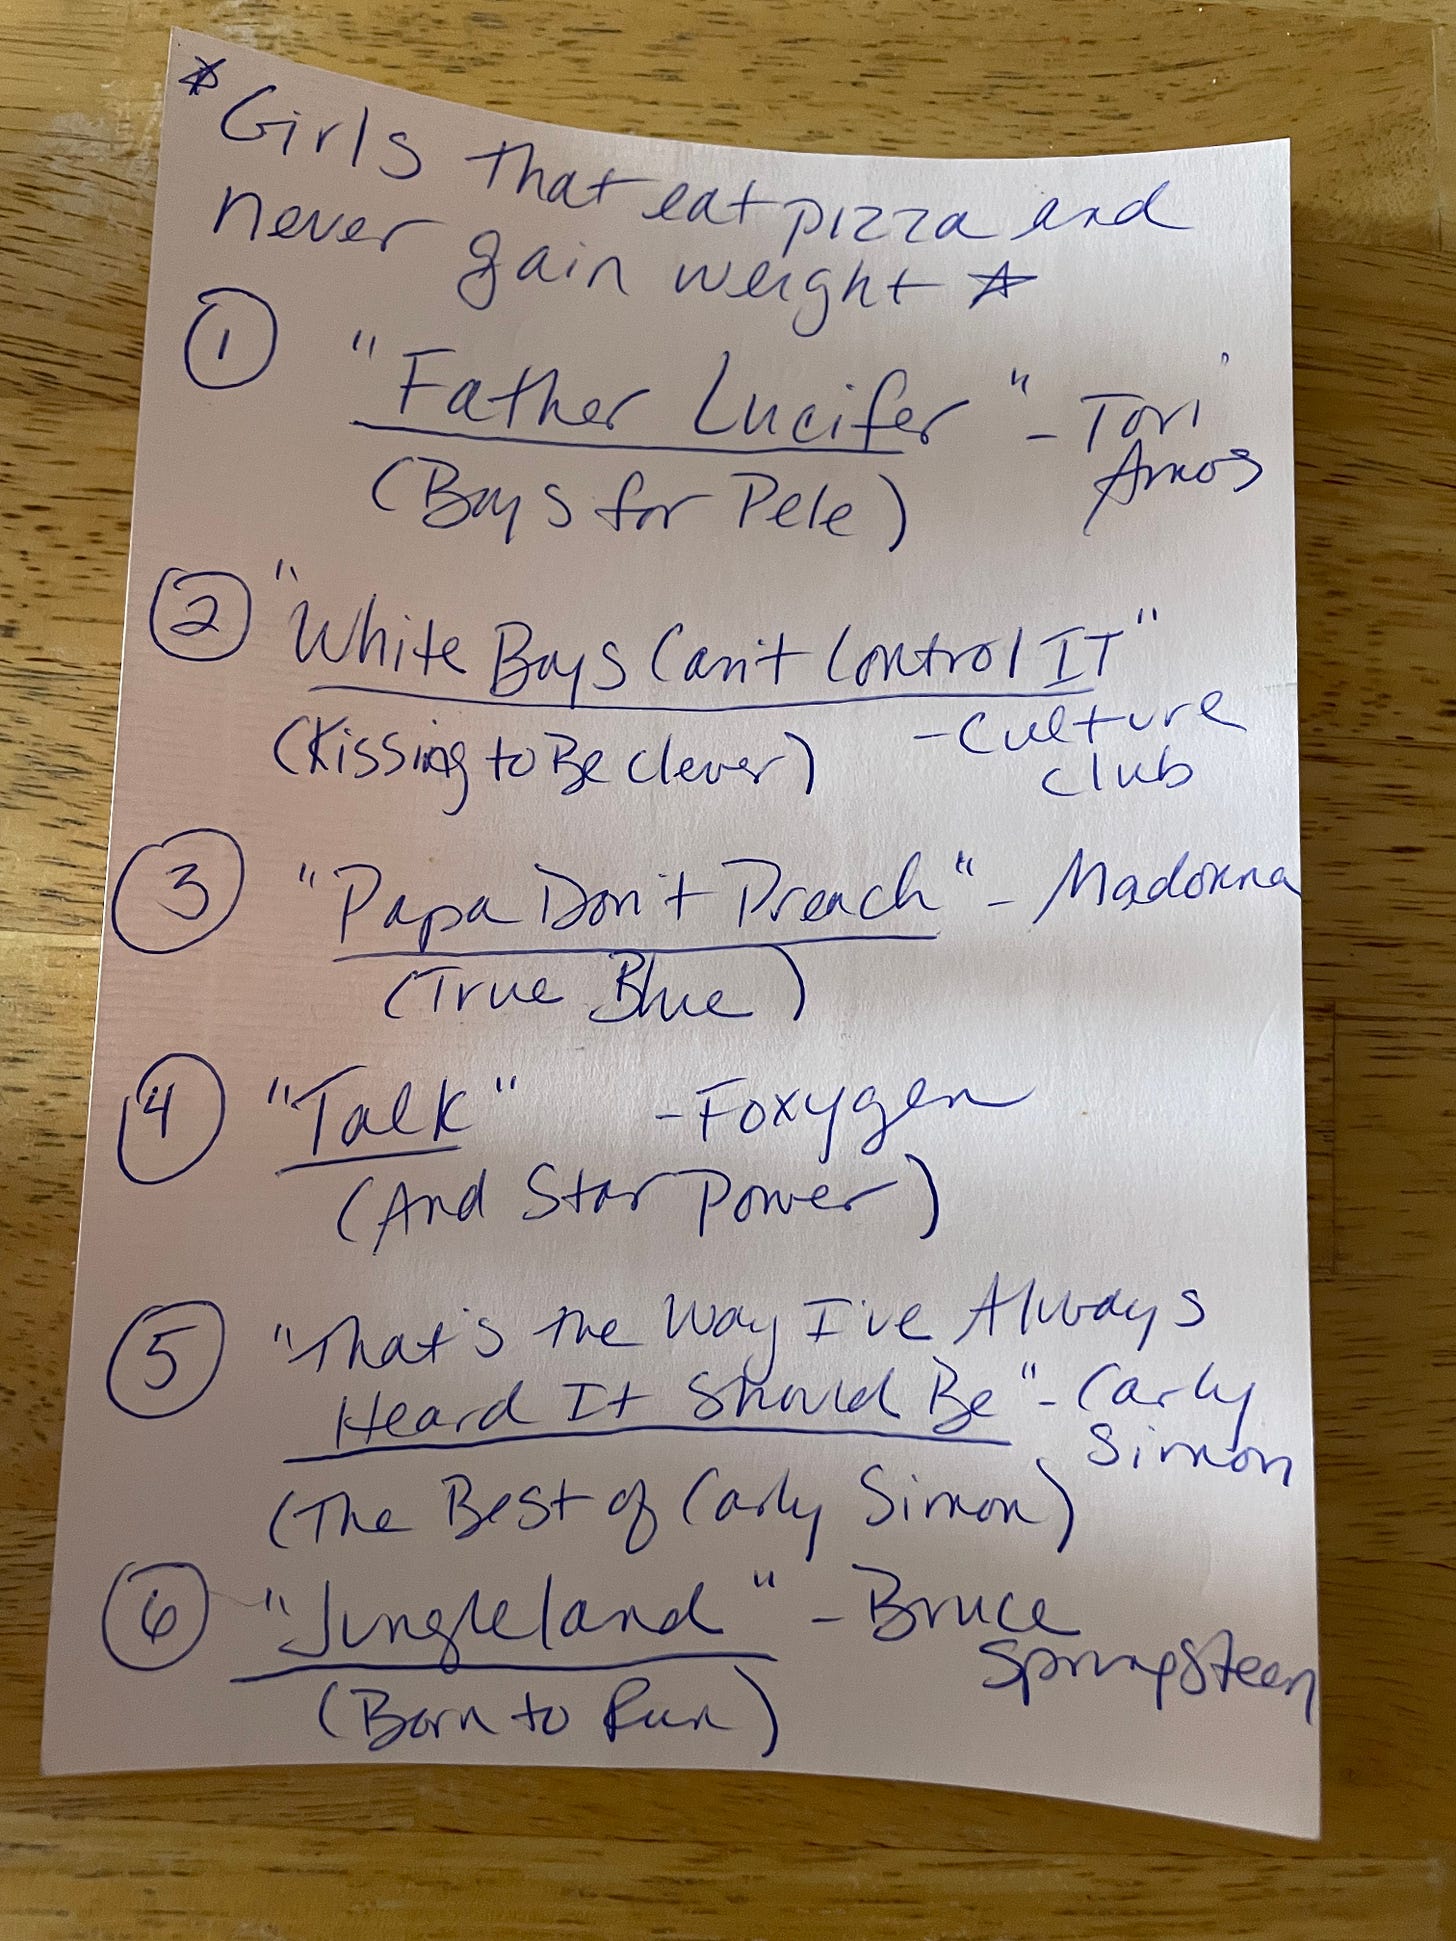 * Girls that eat pizza and
never gain weight *
1 "Father Lucifer" - Tori
Amos
(Boys for Pele)
2 "White Boys Can't Control IT"
(Kissing to Be Clever) - Culture
Club
3 "Papa Don't Preach" - Madonna
(True Blue)
4 "Talk" - Foxygen
(And Star Power)
5 "That's the Way I've Always
Heard It Should Be" - Carly
Simon
(The Best of Carly Simon)
6 "Jungleland" - Bruce
Springsteen
(Born to Run)